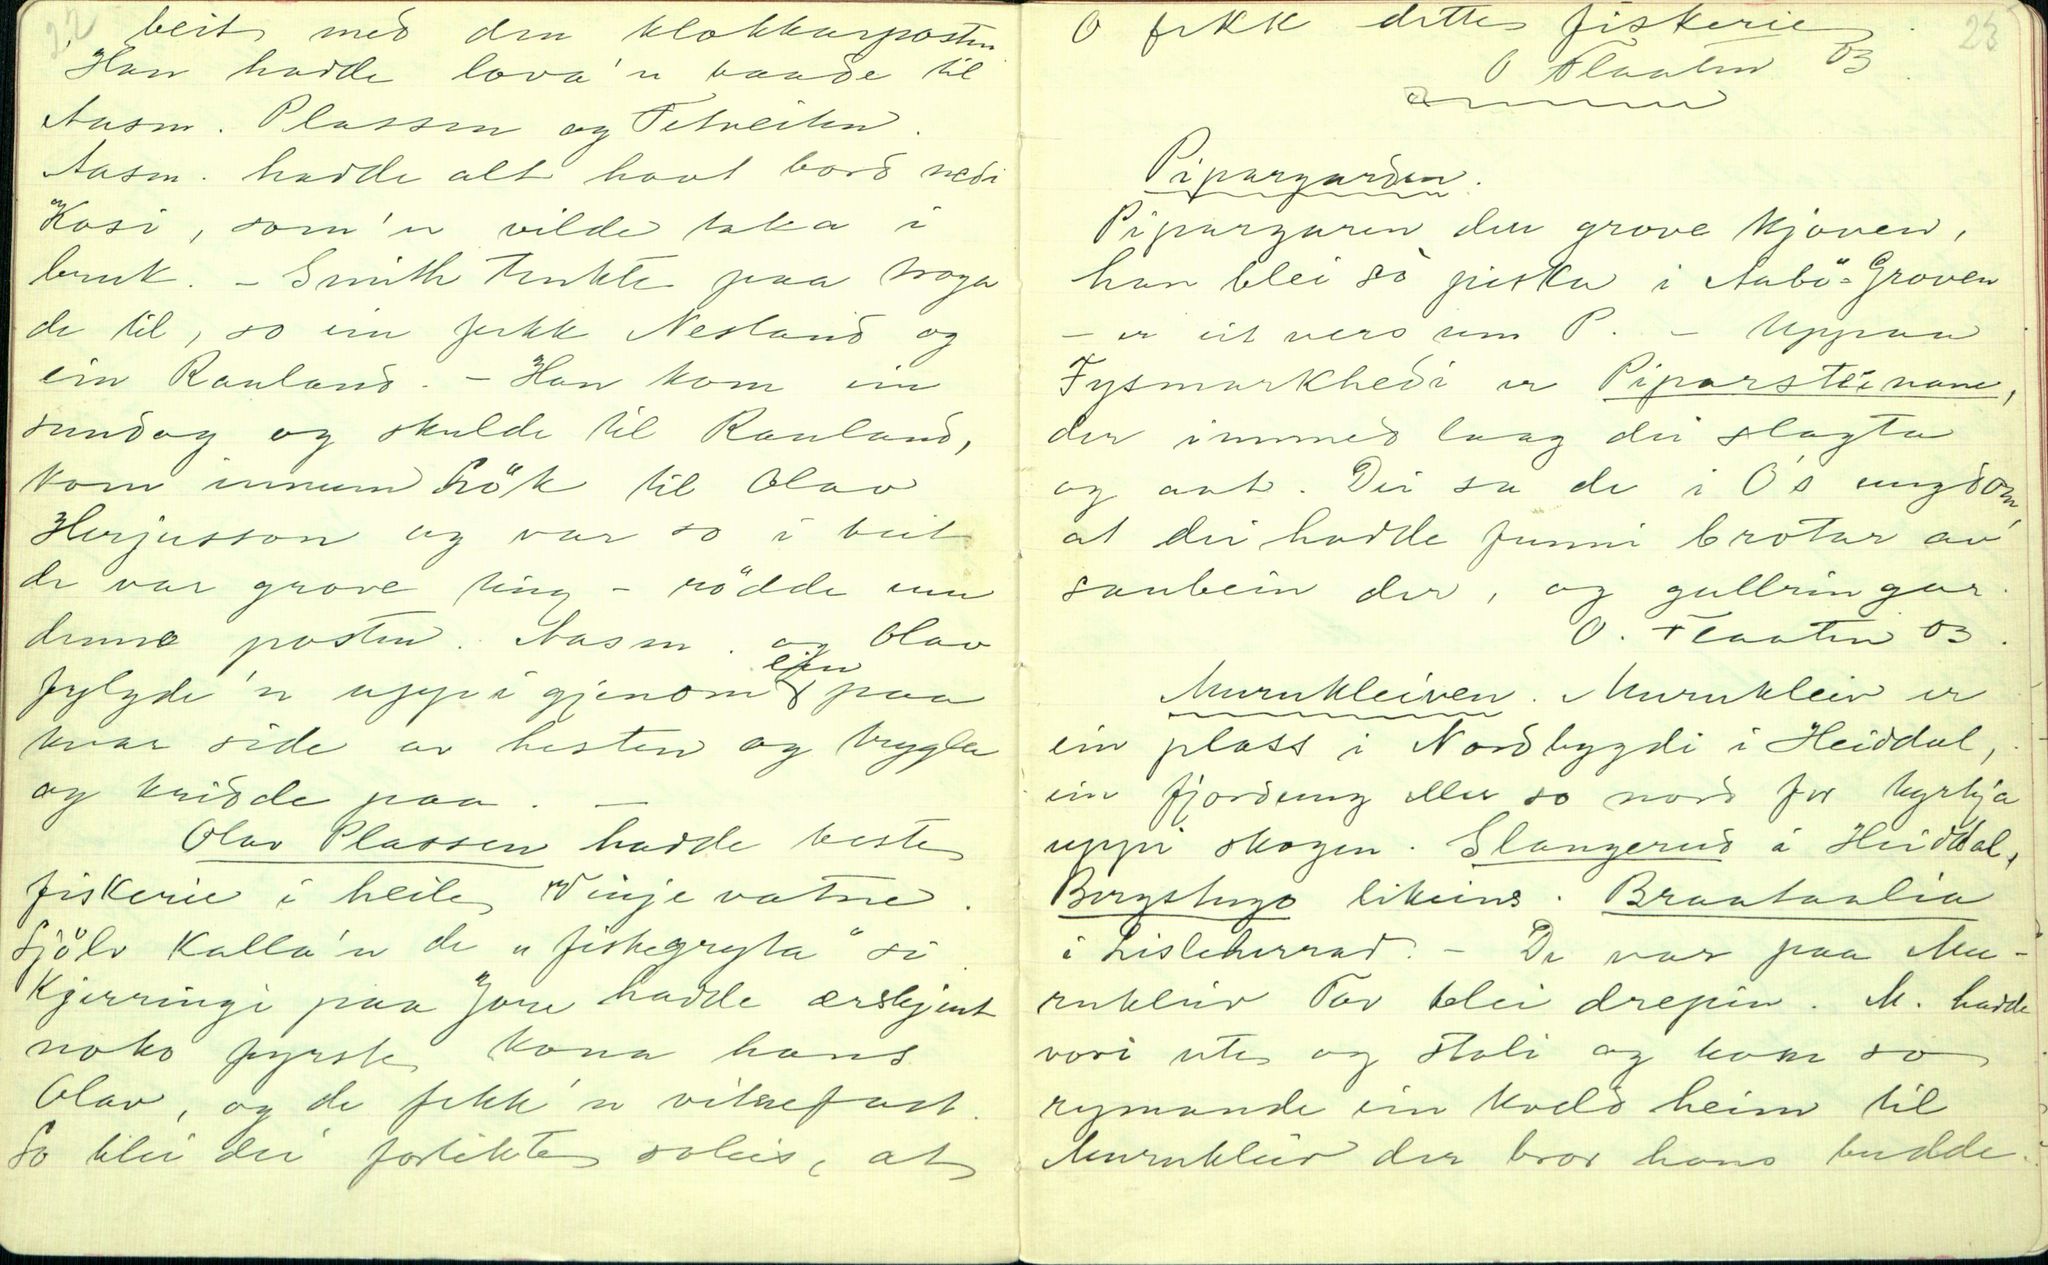 22
beit med den klokkarposten
Han hadde lova'n baade til
Aasm. Plassen og Tetveiten.
Aasm. hadde alt havt bord nedi
Kosi, som'n vilde taka i
bruk. - Smith trukte paa noga
de til, so ein fekk Nesland og
ein Rauland. - Han kom ein
sundag og skulde til Rauland,
kom innum Hök til Olav
Herjusson og var so i beit
de var grove ting - rödde um
denne posten. Aasm. og Olav
fylgde'n uppigjenom ein paa
kvar side av hesten og trygla
og tridde paa. -
Olav Plassen hadde beste
fiskerie i heile Vinjevatne.
Sjölv kalla'n de "fiskegryta" si
Kjerringi paa Jore hadde ærskjent
noko fyrste kona hans
Olav, og de fekk'n vitnefast.
So blei dei forlikte soleis, at
23
O fekk dette fiskerie.
O Flaaten 03.
Pipargarden.
Pipargaren den grove kjöven,
han blei so piska i Aabö-Groven
- er eit vers um P. - Uppaa
Fysmarkhedi er Piparsteinane,
der immed laag dei slagta
og aat. Dei sa de i O's ungdom,
at dei hadde funni brotar av
saubein der, og gullringar.
O. Flaaten 03.
Murukleiven. Murukleiv er
ein plass i Nordbygdi i Heiddal,
ein fjordung eller so nord for kyrkja
uppi skogen. Slangerud i Heiddal,
Bergstugo likeins. Braataalia
i Lisleherrad. - De var paa Mu-
rukleiv Tov blei drepin. M. hadde
vori ute og stoli og kom so
rymande ein kveld heim til
Murukleiv der bror hans budde.